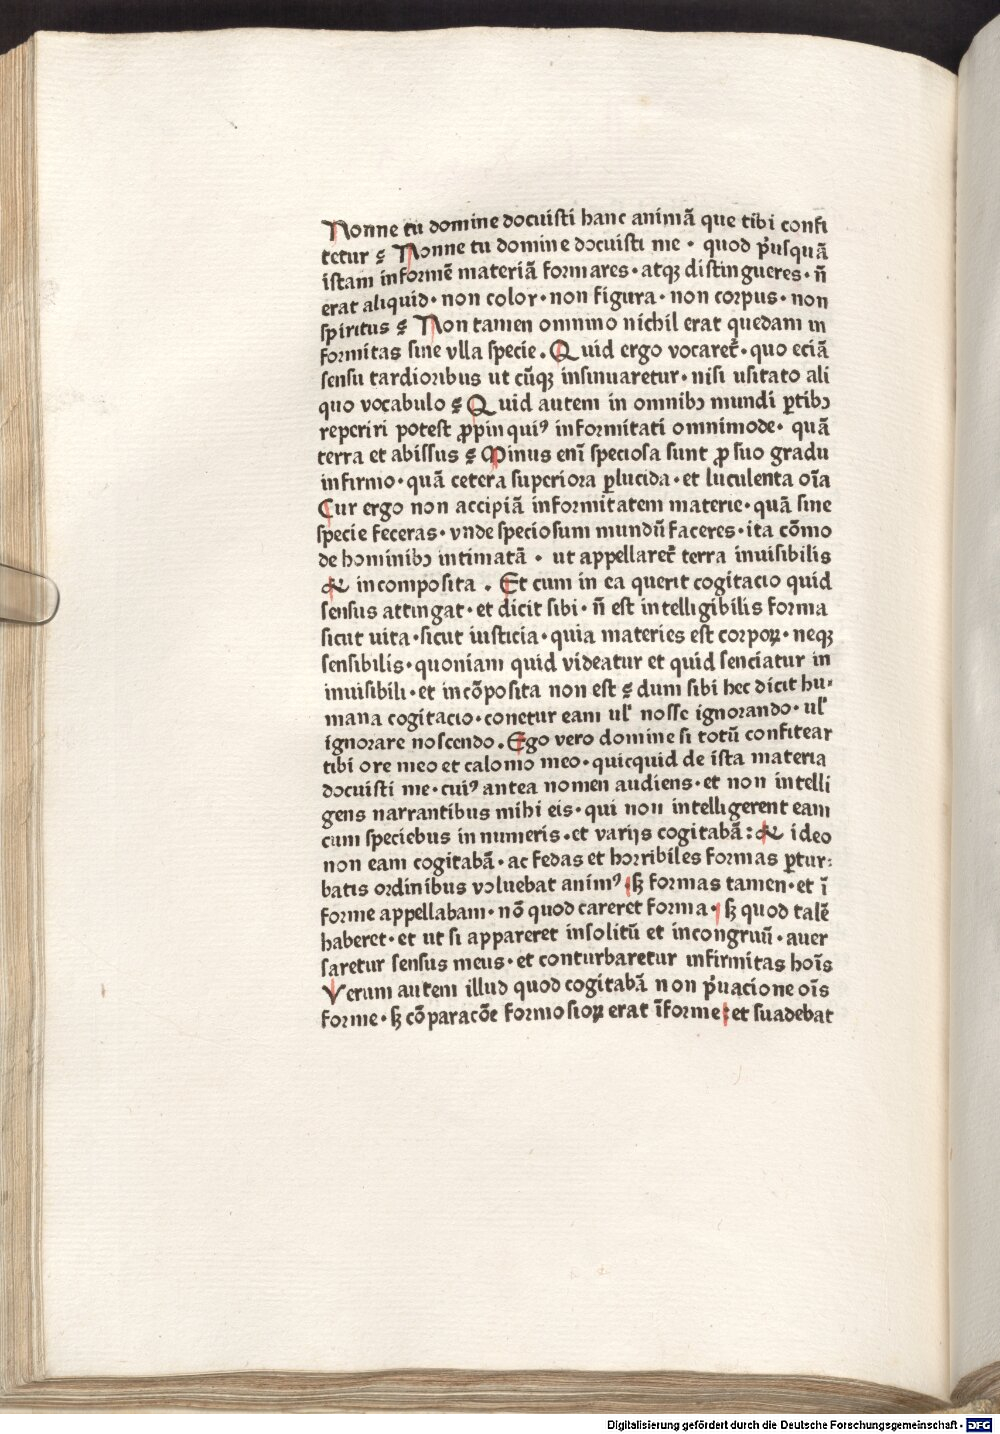 Nonne tu domine docuisti hanc animā que tibi confi
tetur ꝰ Nonne tu domine docuisti me · quod p̉usquā
istam informē materiā formares · atqꝫ distingueres · n̄
erat aliquid · non color · non figura · non corpus · non
spiritus ꝰ Non tamen omnino nichil erat quedam in
formitas sine vlla specie . Quid ergo vocaret᷑ · quo eciā
sensu tardioribus ut cūqꝫ insinuaretur · nisi usitato ali
quo vocabulo ꝰ Quid autem in omnibꝫ mundi ꝑtibꝫ
reperiri potest ꝓpinquiꝰ informitati omnimode · quā
terra et abissus ꝰ Minus enī speciosa sunt ꝓ suo gradu
infirmo · quā cetera superiora ꝑlucida · et luculenta oīa
Cur ergo non accipiā informitatem materie · quā sine
specie feceras · vnde speciosum mundū faceres · ita cōmo
de hominibꝫ intimatā · ut appellaret᷑ terra inuisibilis
& incomposita . Et cum in ea querit cogitacio quid
sensus attingat · et dicit sibi · n̄ est intelligibilis forma
sicut uita · sicut iusticia · quia materies est corpoꝝ · neqꝫ
sensibilis · quoniam quid videatur et quid senciatur in
inuisibili · et incōposita non est ꝰ dum sibi hec dicit hu⸗
mana cogitacio · conetur eam ul̉ nosse ignorando · ul̉
ignorare noscendo . Ego vero domine si totū confitear
tibi ore meo et calomo meo · quicquid de ista materia
docuisti me · cuiꝰ antea nomen audiens · et non intelli
gens narrantibus mihi eis · qui non intelligerent eam
cum speciebus innumeris · et varijs cogitabā : & ideo
non eam cogitabā · ac fedas et horribiles formas ꝑtur⸗
batis ordinibus voluebat animꝰ · sꝫ formas tamen · et ī
forme appellabam · nō quod careret forma · sꝫ quod talē
haberet · et ut si appareret insolitū et incongruū · auer
saretur sensus meus · et conturbaretur infirmitas hoīs
Verum autem illud quod cogitabā non p̉uacione oīs
forme · sꝫ cōparacōe formosioꝝ erat īforme : et suadebat
Digitalisierung gefördert durch die Deutsche Forschungsgemeinschaft - DFG